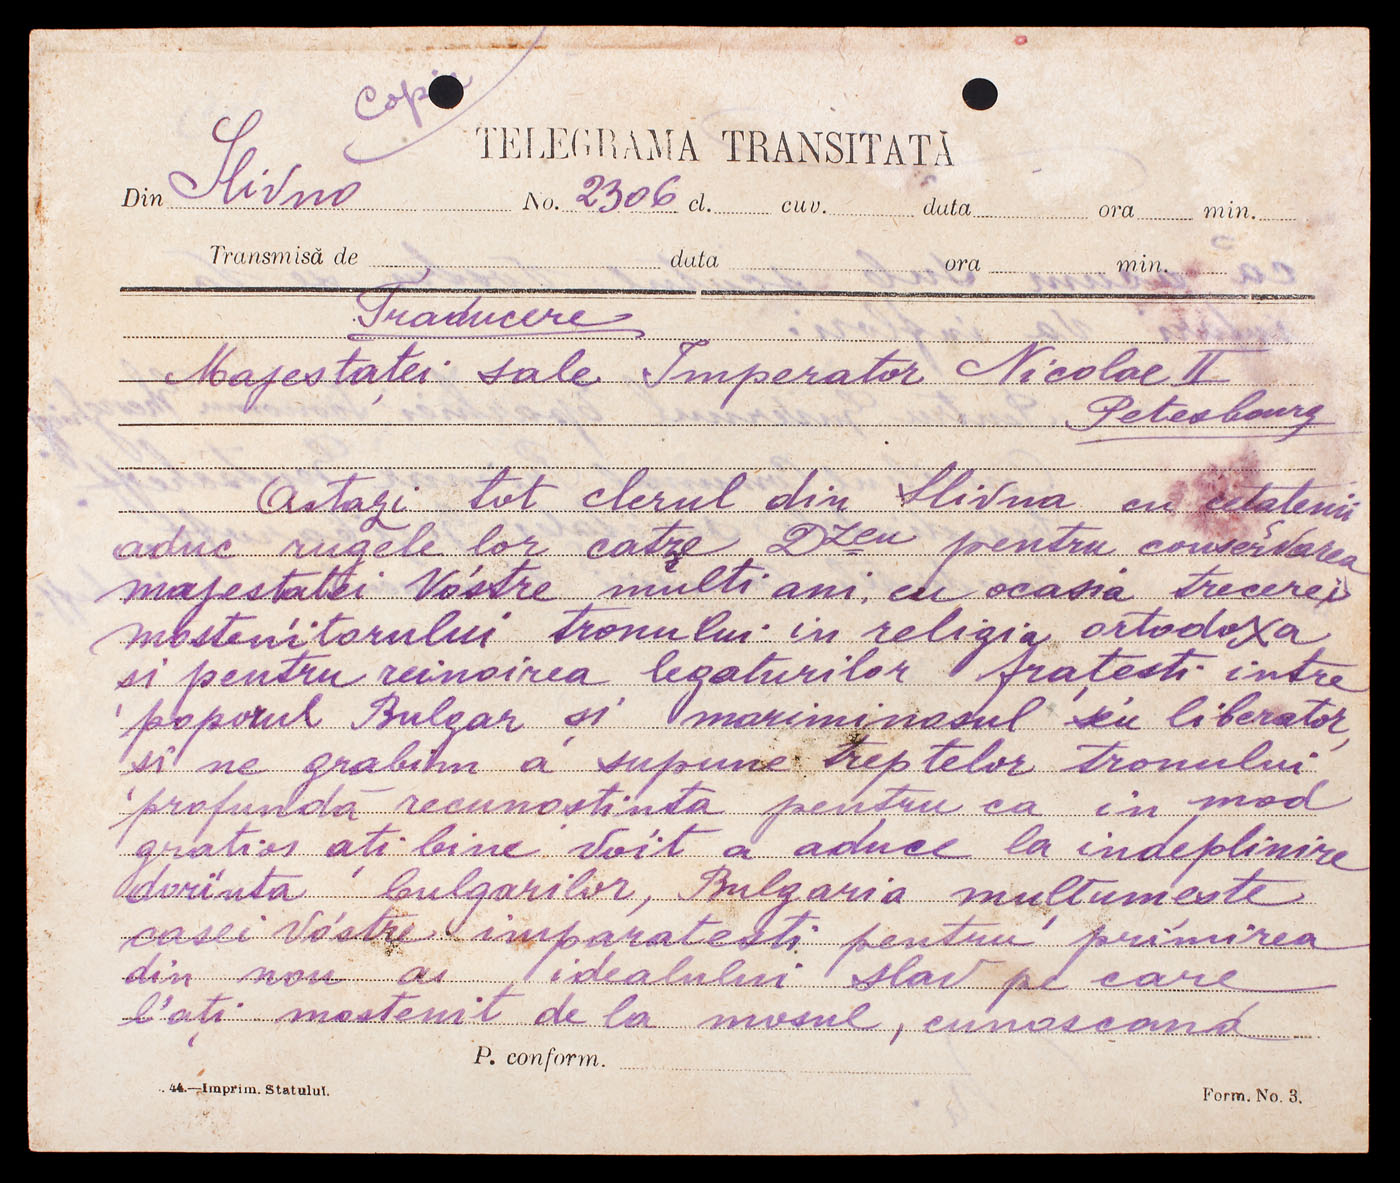 Copie
TELEGRAMA TRANSITATĂ
Din Slivno No. 2306 cl. cuv. data ora min.
Transmisă de data ora min.
Traducere
Majestaței sale Imperator Nicolae II
Petesbourg
Astazi tot clerul din Slivna cu cetatenii
aduc rugele lor catre Dzeu pentru conservarea
majestatei Vóstre multi ani, cu ocasia trecerei
mostenitorului tronului in religia ortodoxa
si pentru reinoirea legaturilor fratesti intre
poporul Bulgar si marinimosul seu liberator,
si ne grabim a supune treptelor tronului
profundă recunostinta pentru ca in mod
gratios ati bine voit a aduce la indeplinire
dorinta bulgarilor, Bulgaria multumeste
casei Vóstre imparatesti pentru primirea
din nou ai idealului slav pe care
l'ați mostenit de la mosul, cunoscand
P. conform.
44.—Imprim. Statului.
Form. No. 3.